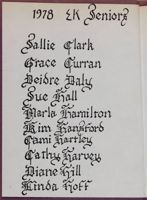 1978 EK Seniors
Sallie Clark
Grace Curran
Deidre Daly
Sue Hall
Marla Hamilton
Kim Hansford
Cami Hartley
Cathy Harvey
Diane Hill
Linda Hoff